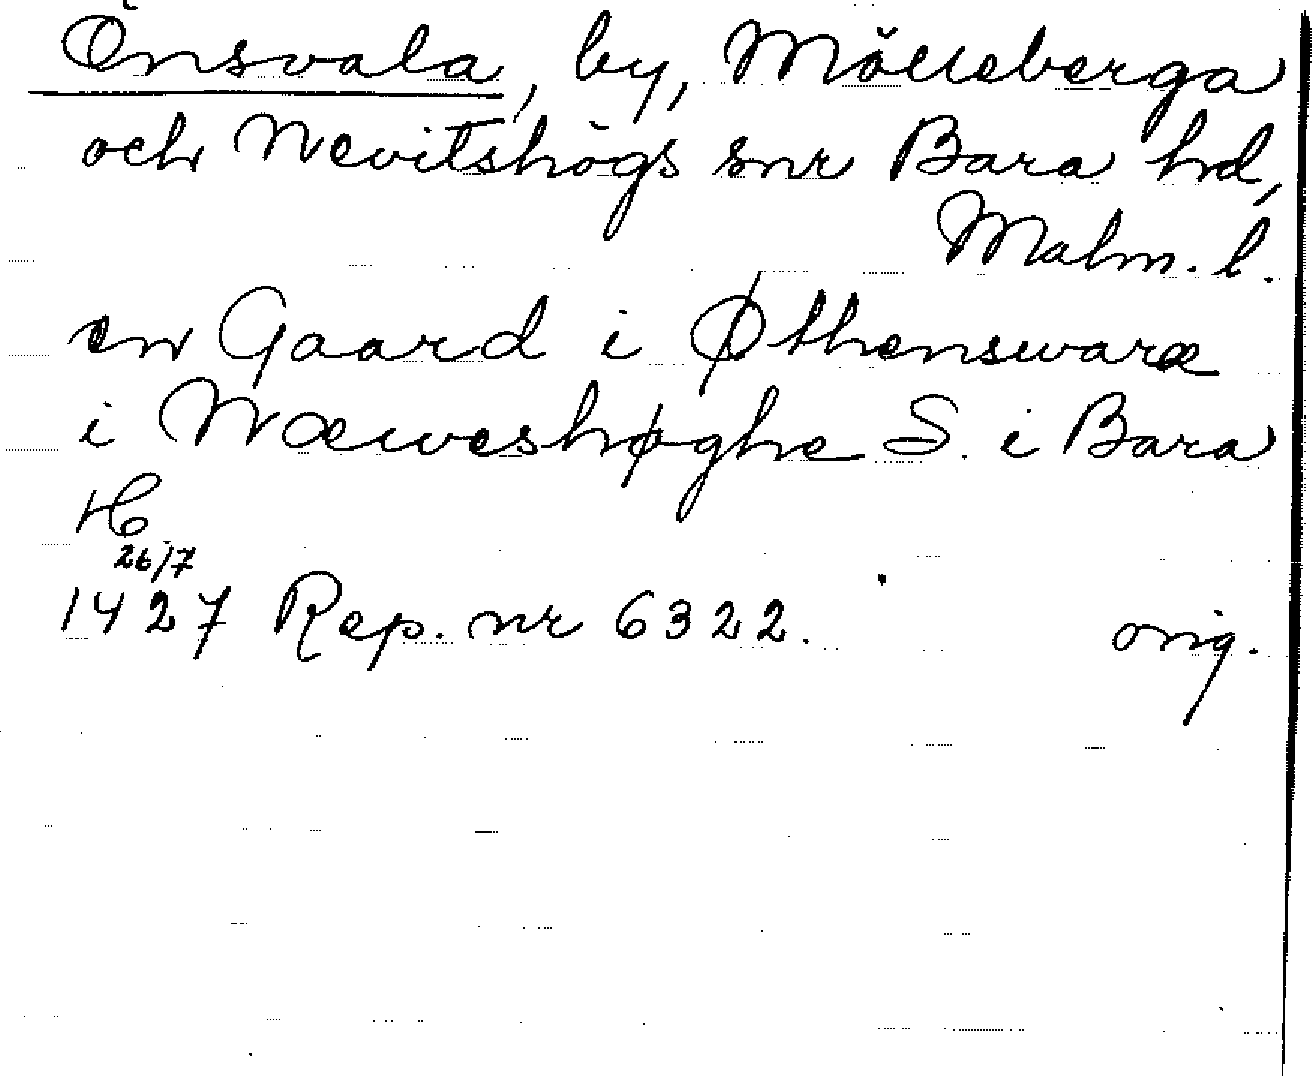 Önsvala, by, Mölleberga
och Nevitshögs snr Bara hd,
Malm. l.
en Gaard i Øthenswaræ
i Næweshøghe S. i Bara
H
26/7
1427 Rep. nr 6322. orig.